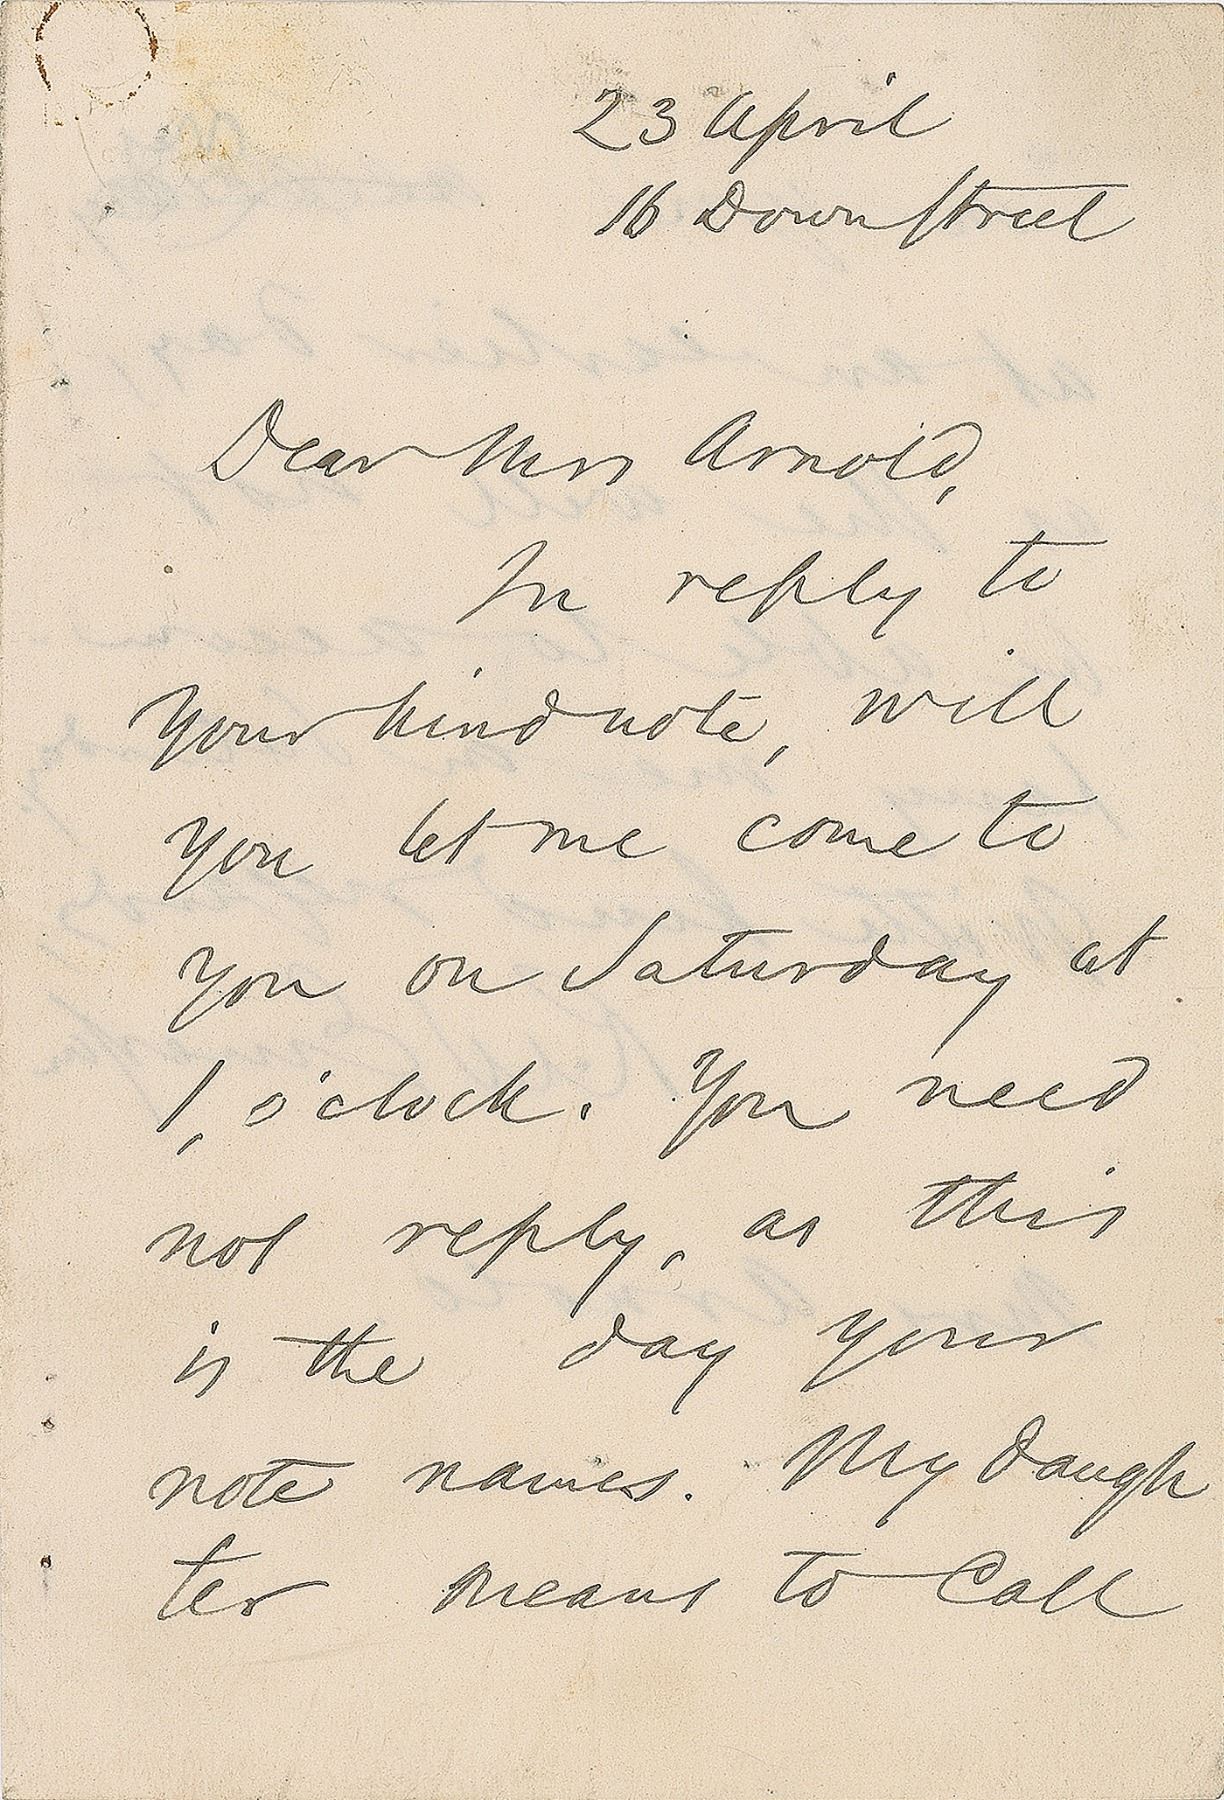 23 April
16 Down Street
Dear Mrs Arnold,
In reply to
your kind note, will
you let me come to
you on Saturday at
1, o'clock. You need
not reply, as this
is the day your
note names. My daugh
ter means to Call